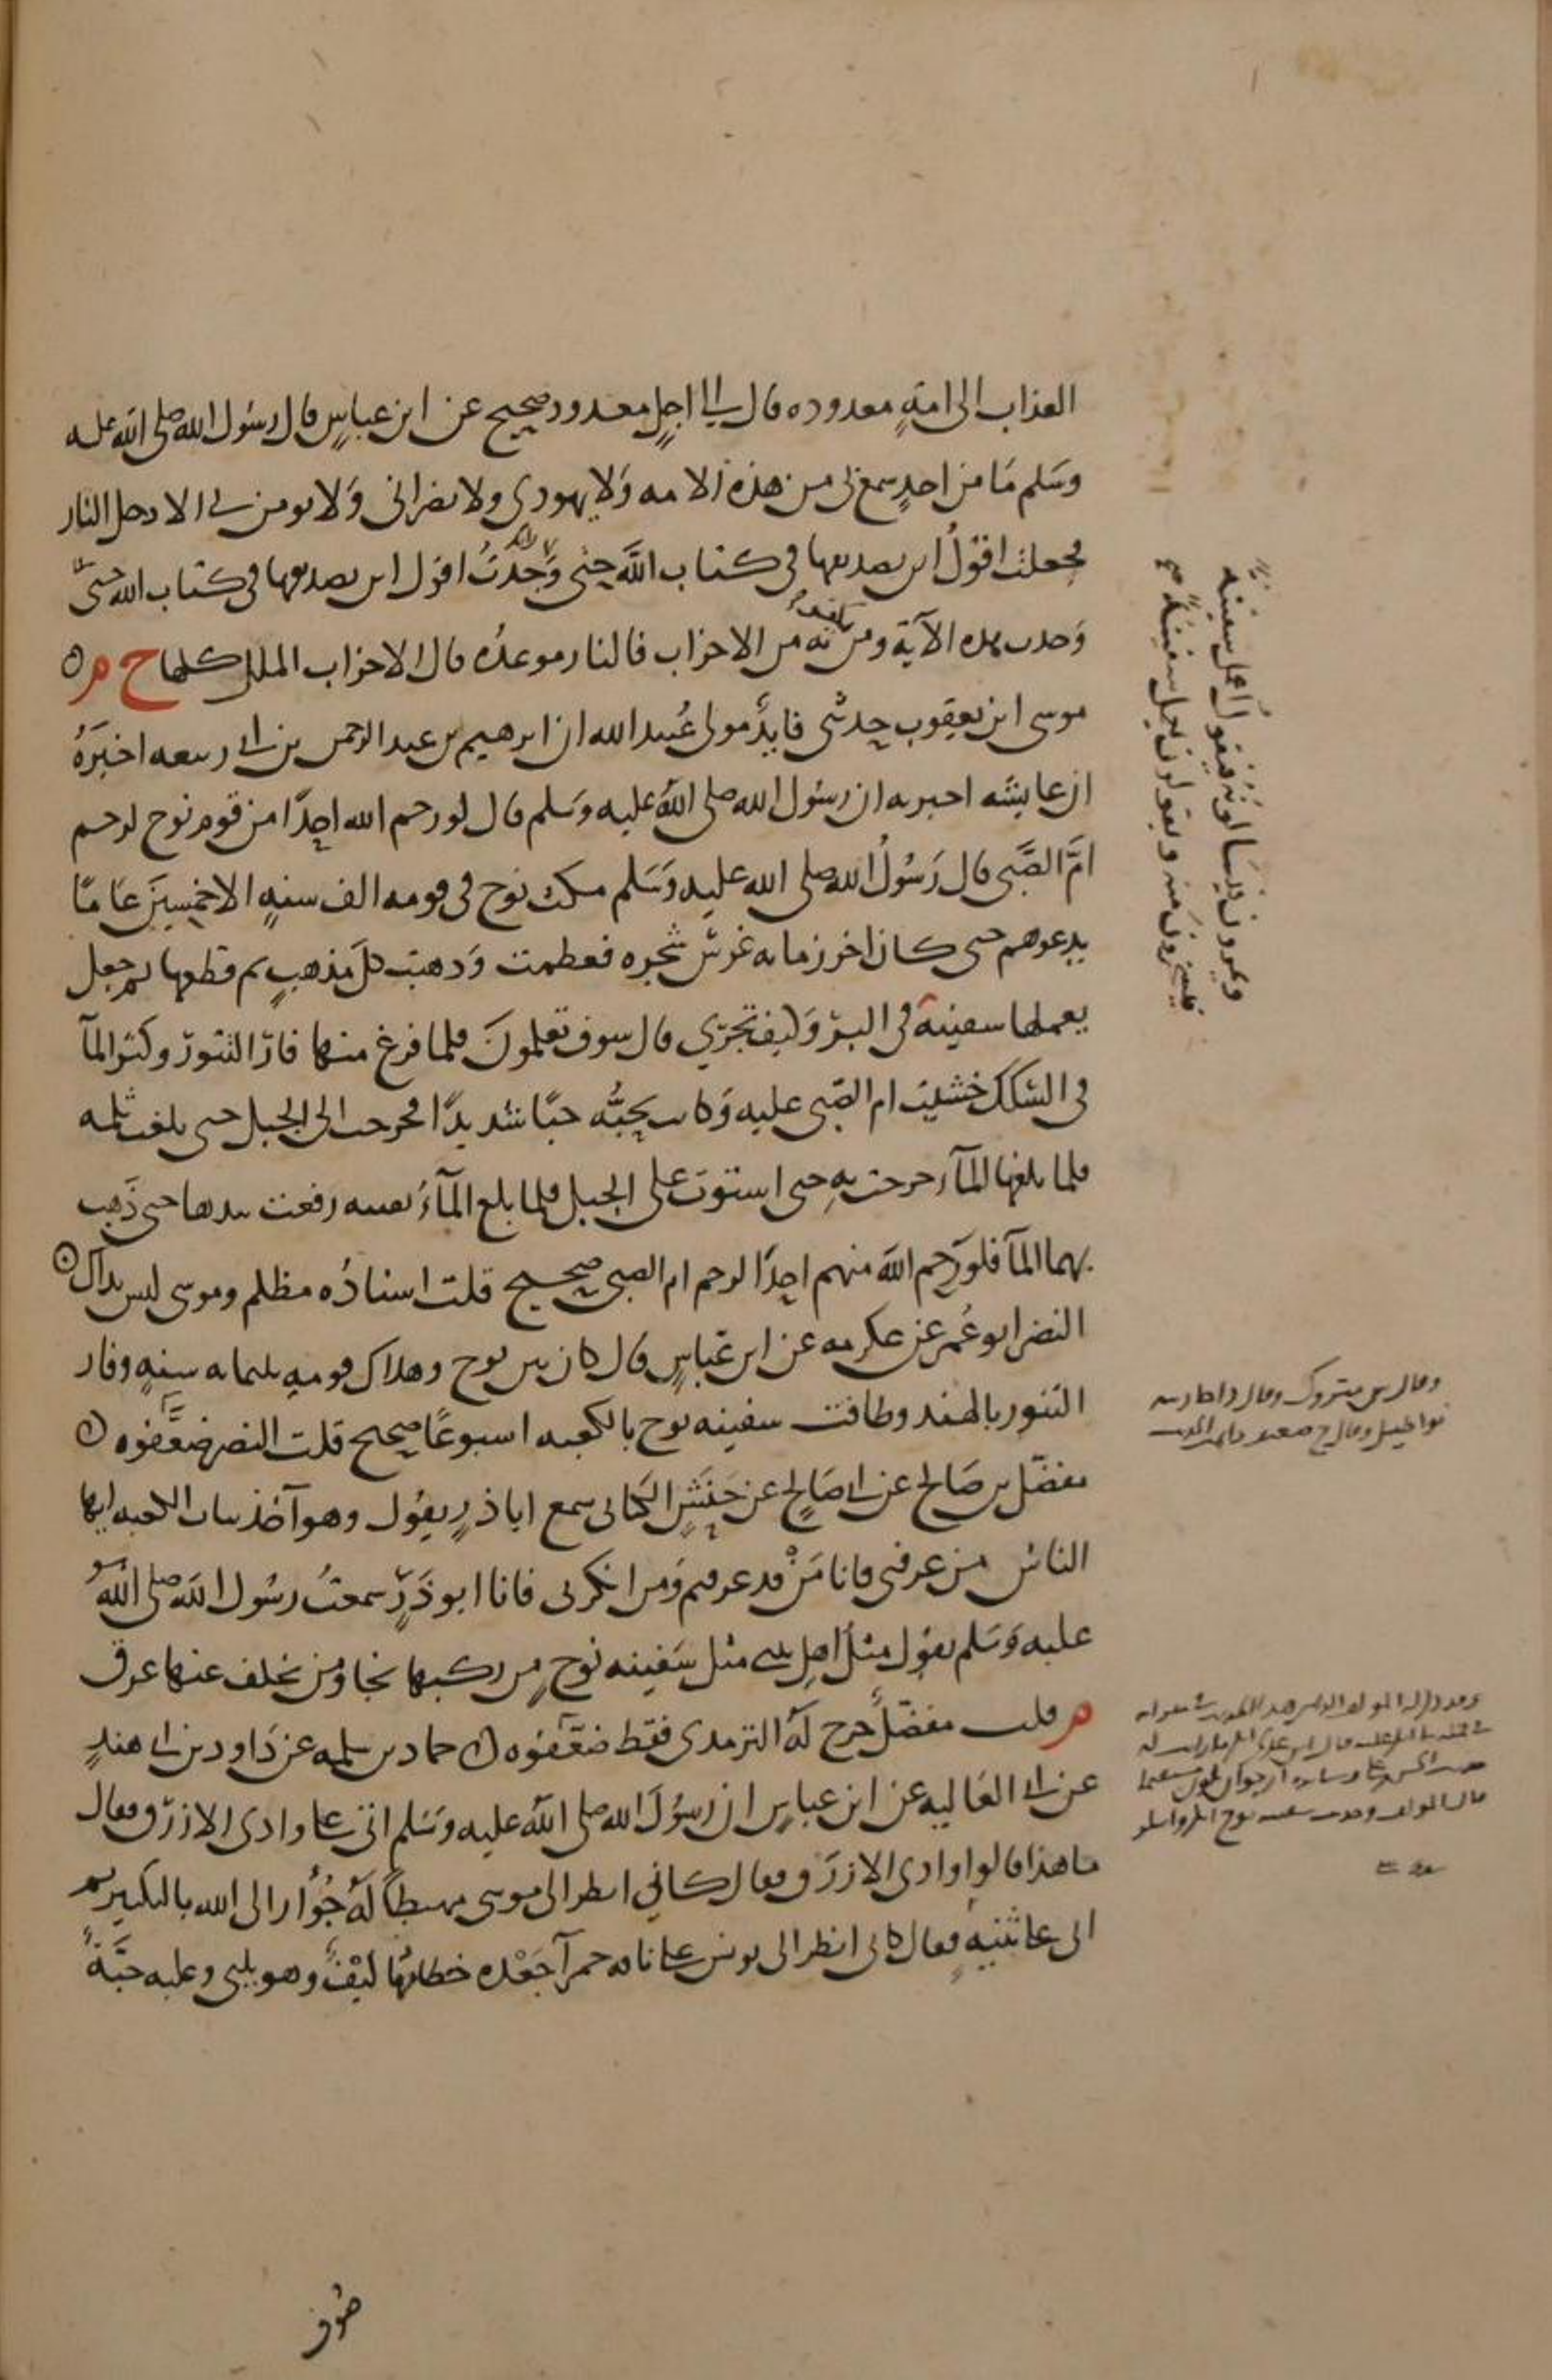 العذاب الى امةٍ معدوده قال الى اجلٍ معدود صحيح عن ابن عباسٍ قال رسُول الله صلى الله عليه
وسَلم مَا من احدٍ سمع بى من هذه الامه وَلا يهودى ولا نصرانى وَلا يومن بى الا دخل النار
فجعلت اقولُ اين تصديقها فى كتاب اللَّه حتى وَجَدتُ اقول اين تصديقها فى كتاب الله حتىّ
وَجدت هذه الآية ومن يكفر به من الاحزاب فالنار موعده قال الاحزاب الملل كلها خ م ه
موسى ابن يعقوب حدثنى فايدٌ مولى عُبيد الله ان ابرهيم بن عبد الرحمن بن ابى ربيعه اخبَرَهُ
ان عايشه اخبرته ان رسُول الله صلى اللهُ عليه وسَلم قال لو رحم الله احدًا من قوم نوح لرحم
امَّ الصَّبى قال رَسُولُ الله صلى الله عليه وَسَلم مكث نوح فى قومه الف سنهٍ الا خمسينَ عَامًا
يدعوهم حتى كان اخر زمانه غرسَ شجره فعظمت وَذهبَت كلَّ مذهبٍ ثم قطعها ثم جعل
يعملها سفينة فى البرّ وَكيف تجرّى قال سوف تعلمونَ فلما فرغ منها فارّ التنورّ وكثر المآ
فى السّكك خشيَت ام الصّبى عليه وَكانت تحبُّه حبّا شديدًا فخرجت الى الجبل حتى بلغت ثلثه
فلما بلغها المآء خرجت بهِ حتى استوَت على الجبل فلما بلغ المآءُ رقبته رفعت بيدها حتى ذَهب
بهما المآ فلو رَحم اللَّه منهم احدًا لرحم ام الصبى صحيح قلت اسنادُه مظلم وموسى ليس بذاك ه
النضر ابو عُمر عن عكرمه عن ابن عَبَّاسٍ قال كان بين نوح وهلاك قومهِ ثلثمايه سنهٍ وفار
التنور بالهند وطافت سفينه نوح بالكعبه اسبوعًا صحيح قلت النضر ضعَّفوه ه
مفضّل بن صَالح عن ابى صَالح عن حَنَشٍ الكنانى سمع اباذرٍ يقول وهو آخذ بباب الكعبه ايها
الناسُ من عرفنى فانا مَنْ قد عرفتم وَمن انكرنى فانا ابو ذَرٍّ سمعتُ رسُول اللَه صلى اللهُ
عليه وَسَلم يقول مثل اهل بيتى مثل سَفينه نوحٍ من ركبها نجا وَمن تخلف عنها غرق
م قلت مفضّلٌ خرج لهُ الترمذى فقط ضعّفوه ه حماد بن سلمه عن دَاود بن ابى هندٍ
عن ابى العَاليه عن ابن عباسٍ ان رسوُلَ الله صلى اللهُ عليه وسَلم اتى على وادى الازرق فقال
ما هذا قالوا وادى الازرَق فقال كانى انظر الى موسى مهبطًا لهُ جُؤار الى الله بالتكبير ثم
اتى على ثنيهٍ فقال كانى انظر الى يونس على ناقه حمرآ جَعْده خطامُها ليفٌ وهو يلبى وعليه جبَّةٌ
صُوف
ويمرون فيسَالونهُ فيقول اعمل سفينة
فيسخرون منه ويقولون تعمل سفينة